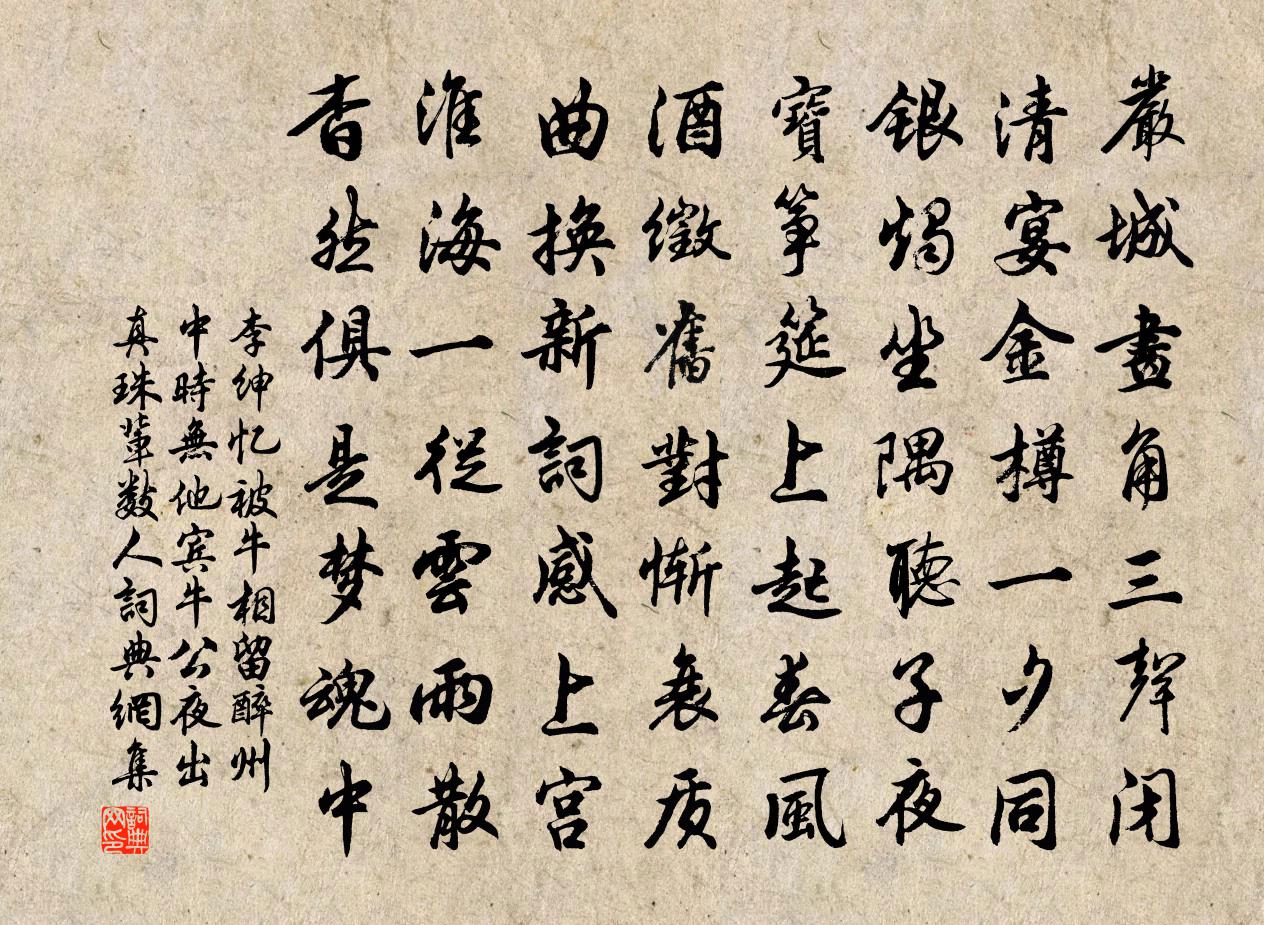 嚴城畫角三聲闭
清宴金樽一夕同
銀燭坐隅聽子夜
寶箏筵上起春風
酒徵舊對慚衰质
曲換新詞感上宮
淮海一從雲雨散
杳然俱是梦魂中
李紳忆被牛相留醉州
中時無他宾牛公夜出
真珠輩數人詞典網集
詞典
网印